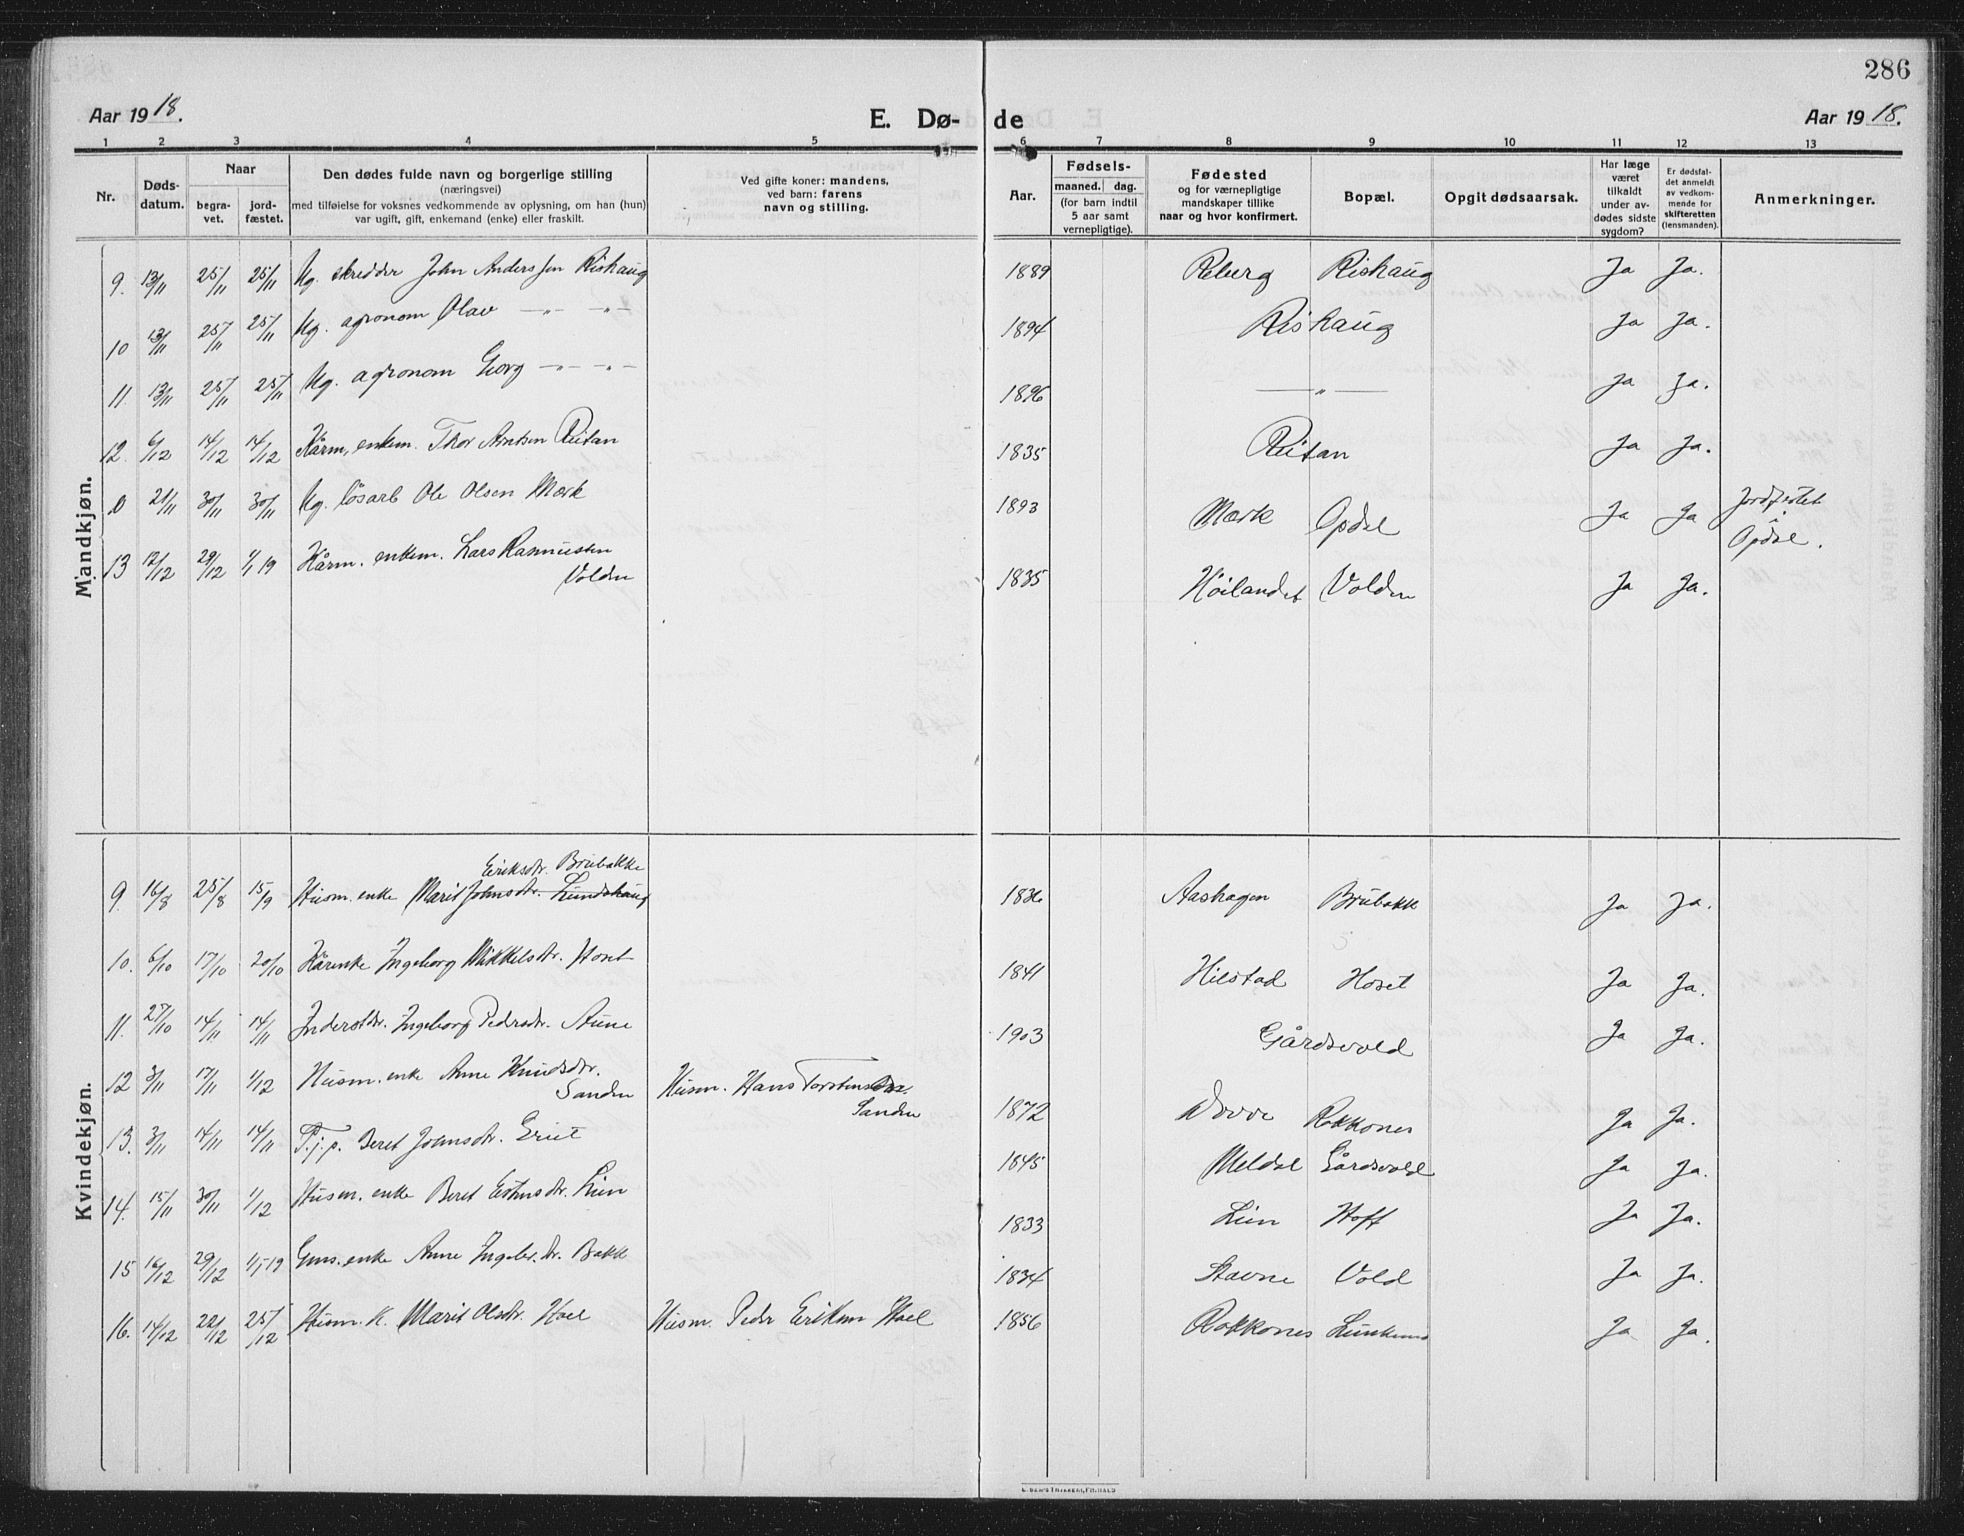 286
Aar 1918. E. Dø- de Aar 1918.
1 2 3 4 5 6 7 8 9 10 11 12 13
Nr. Døds-datum. Naar begra-vet. jord-fæstet. Den dødes fulde navn og borgerlige stilling (næringsvei) med tilføielse for voksnes vedkommende av oplysning, om han (hun) var ugift, gift, enkemand (enke) eller fraskilt. Ved gifte koner: mandens, ved barn: farens navn og stilling. Aar. Fødsels- maaned. dag. (for barn indtil 5 aar samt vernepligtige). Fødested og for værnepligtige mandskaper tillike naar og hvor konfirmert. Bopæl. Opgit dødsaarsak. Har læge været tilkaldt under av-dødes sidste sygdom? Er dødsfal-det anmeldt av vedkom-mende for skifteretten (lensmanden). Anmerkninger.
Mandkjøn.
9. 13/11 25/11 25/11 Ug. skredder John Anderssen Rishaug 1889 Reberg Rishaug Ja Ja.
10 13/11 25/11 25/11 Ug. agronom Olav —„— —„— 1894 Rishaug Ja Ja.
11. 13/11 25/11 25/11 Ug. agronom Georg —„— —„— 1896 —„— Ja Ja.
12. 6/12 14/12 14/12 Kårm. enkem. Thor Arntsen Reitan 1835 Reitan Ja Ja.
0 21/11 30/11 30/11 Ug. løsarb Ole Olsen Mærk 1893 Mærk Opdal Ja Ja Jordfestet i Opdal.
13 12/12 29/12 1/1 19 Kårm. enkem. Lars Rasmussen Volden 1835 Høilandet Volden Ja Ja.
Kvindekjøn.
Eriksdtr. Brubakke
9. 16/8 25/8 15/9 Husm. enke Marit Johnsdtr. Lundshaug 1836 Aashagen Brubakk Ja Ja.
10. 6/10 17/10 20/10 Kårenke Ingeborg Mikkelsdtr. Hoset 1841 Hilstad Hoset Ja Ja.
11. 27/10 14/11 14/11 Inderstdtr. Ingeborg Pedersdtr. Aune 1903 Gårdsvold Ja Ja.
12 3/11 17/11 1/12 Husm. enke Anne Knudsdtr. Sanden Husm. Hans Torstensen Sanden 1872 Dovre Rokkones Ja Ja.
13. 3/11 14/11 14/11 T.j.p. Beret Johnsdtr. Griut 1845 Meldal Gårdsvold Ja Ja.
14. 15/11 30/11 1/12 Husm. enke Beret Estensdtr. Lien 1833 Lien Hoff Ja Ja.
15 16/12 29/12 1/1 19 Gms. enke Anne Ingebr.dtr. Bakk 1834 Stavne Vold Ja Ja.
16. 14/12 22/12 25/12 Husm. K. Marit Olsdtr. Hoel Husm. Peder Eriksen Hoel 1856 Rokkones Ja Ja.